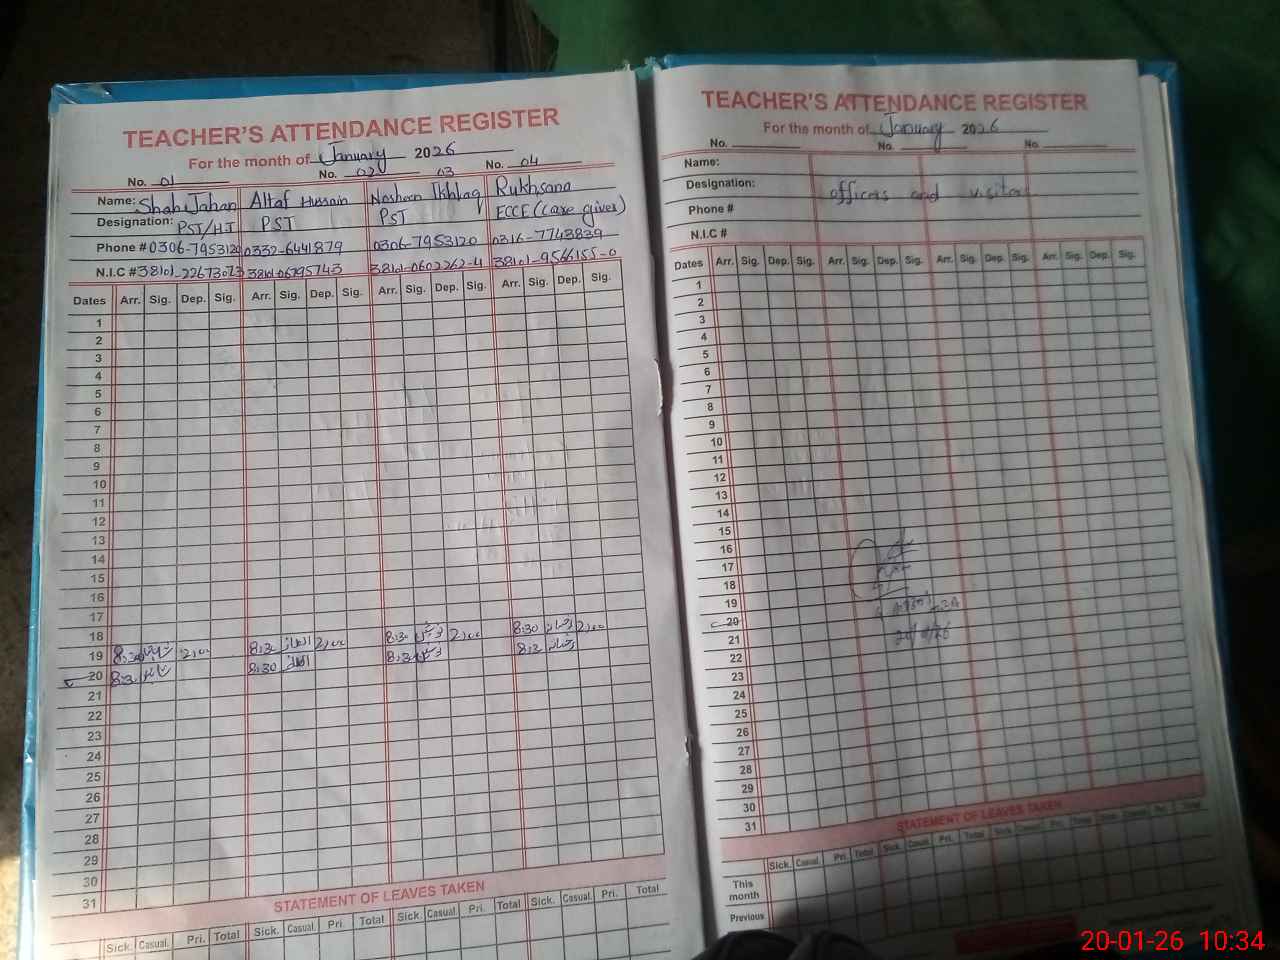 TEACHER'S ATTENDANCE REGISTER
For the month of January 2026
No. 01 No. 02 03 No. 04
Name: Shah Jahan Altaf Hussain Nosheen Ikhlaq Rukhsana
Designation: PST/HT PST PST ECCE (care giver)
Phone # 0306-7953120 0332-6441879 0306-7953120 0316-7743839
N.I.C # 38101-2267307-3 38101-0602262-4 38101-9566155-0
Dates Arr. Sig. Dep. Sig. Arr. Sig. Dep. Sig. Arr. Sig. Dep. Sig. Arr. Sig. Dep. Sig.
1
2
3
4
5
6
7
8
9
10
11
12
13
14
15
16
17
18
19 8:30 2:00 8:30 2:00 8:30 2:00 8:30 2:00
20 8:30 8:30 8:30 8:30
21
22
23
24
25
26
27
28
29
30
31
STATEMENT OF LEAVES TAKEN
Sick. Casual. Pri. Total Sick. Casual. Pri. Total Sick. Casual. Pri. Total Sick. Casual. Pri. Total
TEACHER'S ATTENDANCE REGISTER
For the month of January 2026
No. No. No.
Name:
Designation: officers and visitors
Phone #
N.I.C #
Dates Arr. Sig. Dep. Sig. Arr. Sig. Dep. Sig. Arr. Sig. Dep. Sig. Arr. Sig. Dep. Sig.
1
2
3
4
5
6
7
8
9
10
11
12
13
14
15
16
17
18
19
20
21
22
23
24
25
26
27
28
29
30
31
STATEMENT OF LEAVES TAKEN
Sick. Casual. Pri. Total Sick. Casual. Pri. Total Sick. Casual. Pri. Total Sick. Casual. Pri. Total
This month
Previous
20-01-26 10:34